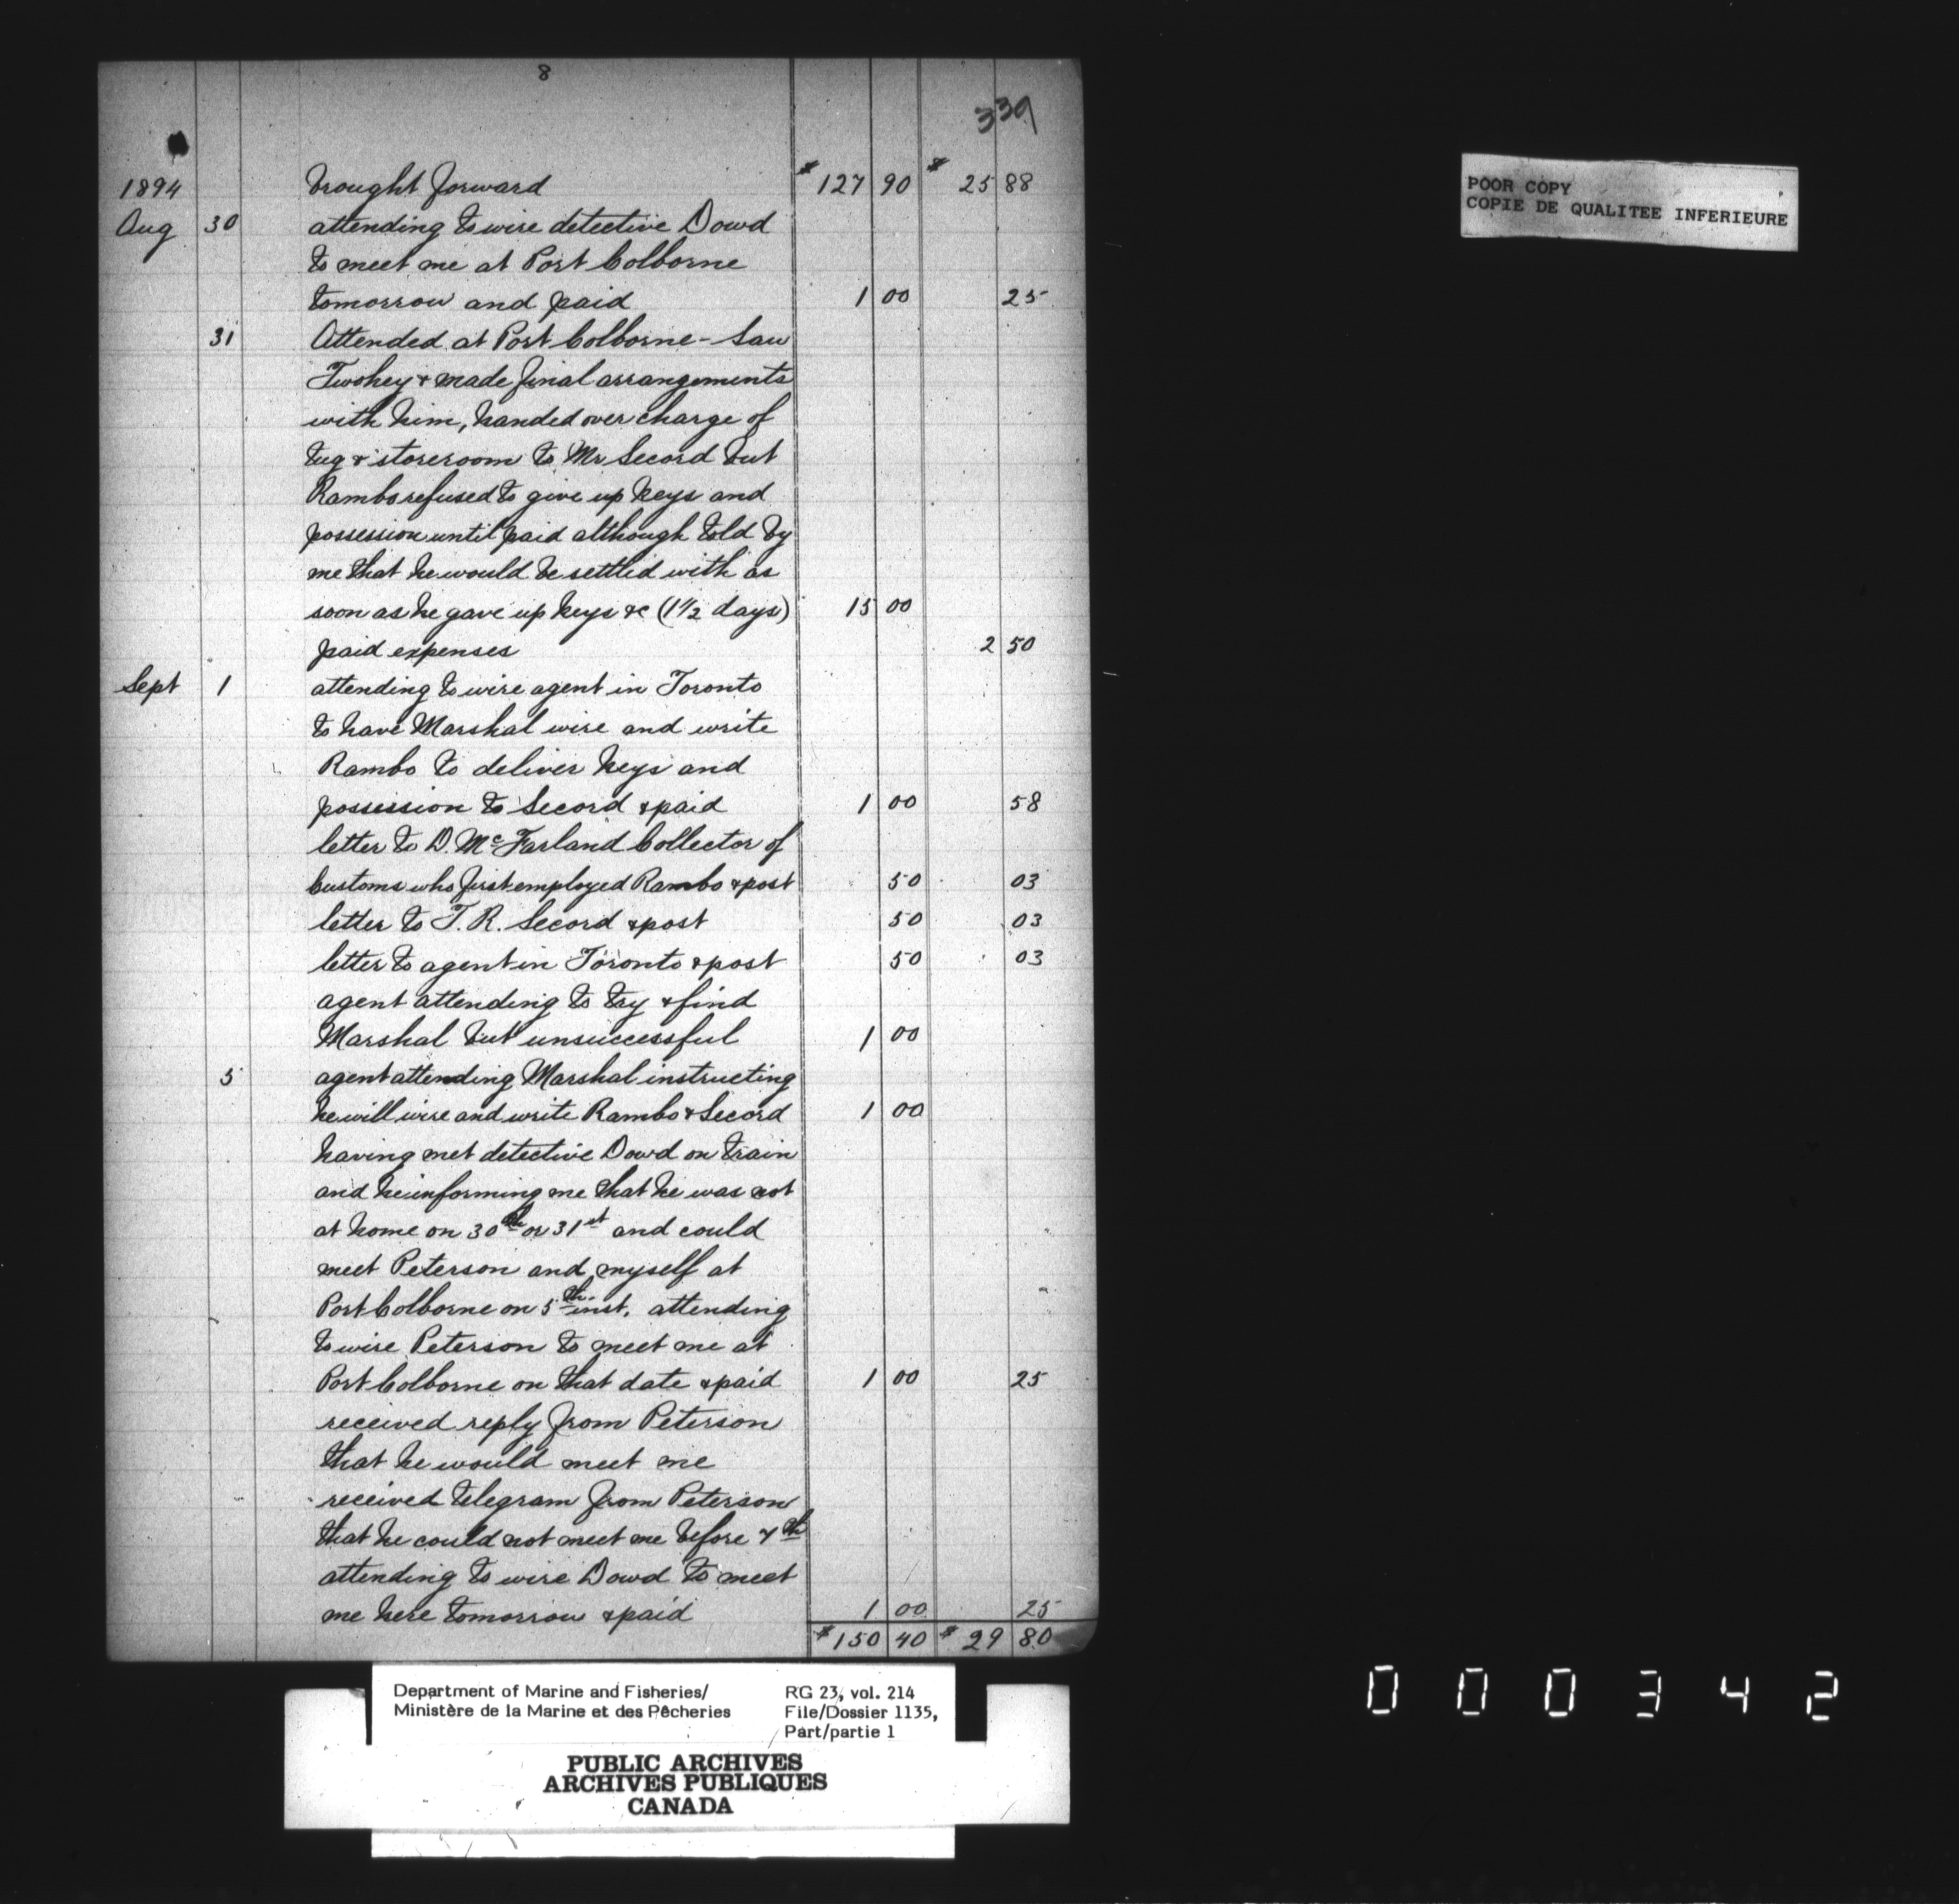 8
339
1894 brought forward $127 90 $25 88
Aug 30 attending to wire detective Dowd
to meet me at Port Colborne
tomorrow and paid 1 00 25
31 Attended at Port Colborne - Saw
Twohey & made final arrangements
with him, handed over charge of
tug & storeroom to Mr Secord but
Rambo refused to give up keys and
possession until paid although told by
me that he would be settled with as
soon as he gave up keys &c (1 1/2 days) 15 00
paid expenses 2 50
Sept 1 attending to wire agent in Toronto
to have Marshal wire and write
Rambo to deliver keys and
possession to Secord & paid 1 00 58
letter to D. McFarland Collector of
Customs who first employed Rambo & post 50 03
letter to T. R. Secord & post 50 03
letter to agent in Toronto & post 50 03
agent attending to try & find
Marshal but unsuccessful 1 00
5 agent attending Marshal instructing
he will wire and write Rambo & Secord 1 00
having met detective Dowd on train
and he informing me that he was not
at home on 30th or 31st and could
meet Peterson and myself at
Port Colborne on 5th inst. attending
to wire Peterson to meet me at
Port Colborne on that date & paid 1 00 25
received reply from Peterson
that he would meet me
received telegram from Peterson
that he could not meet me before 7th
attending to wire Dowd to meet
me here tomorrow & paid 1 00 25
$150 40 $29 80
POOR COPY
COPIE DE QUALITEE INFERIEURE
Department of Marine and Fisheries/ RG 23, vol. 214
Ministère de la Marine et des Pêcheries File/Dossier 1135,
Part/partie 1
PUBLIC ARCHIVES
ARCHIVES PUBLIQUES
CANADA
000342